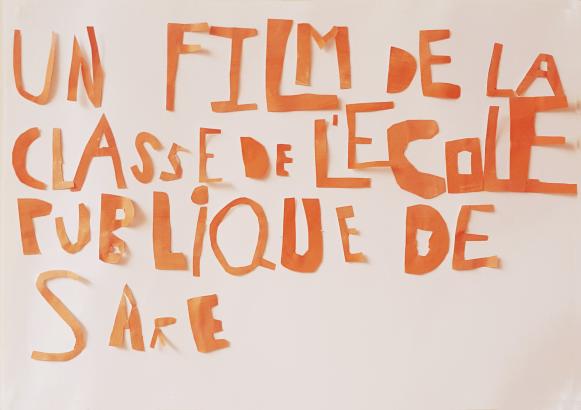 UN FILM DE LA
CLASSE DE L'ECOLE
PUBLIQUE DE
SARE